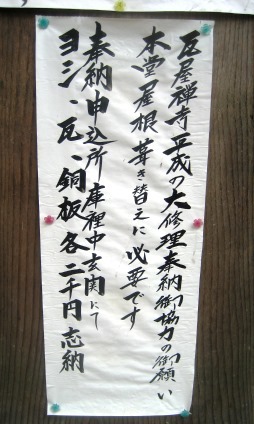 瓦屋禅寺平成の大修理奉納御協力の御願い
本堂屋根葺き替えに必要です
奉納申込所庫裡中玄関にて
ヨシ、瓦、銅板各二千円志納